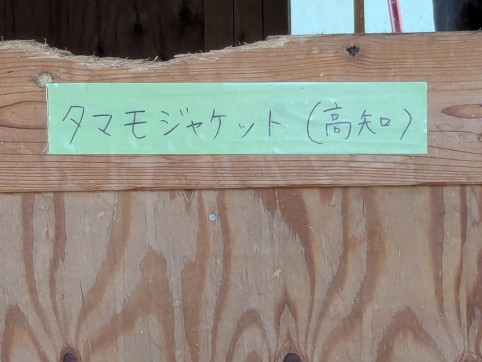 タマモジャケット(高知)